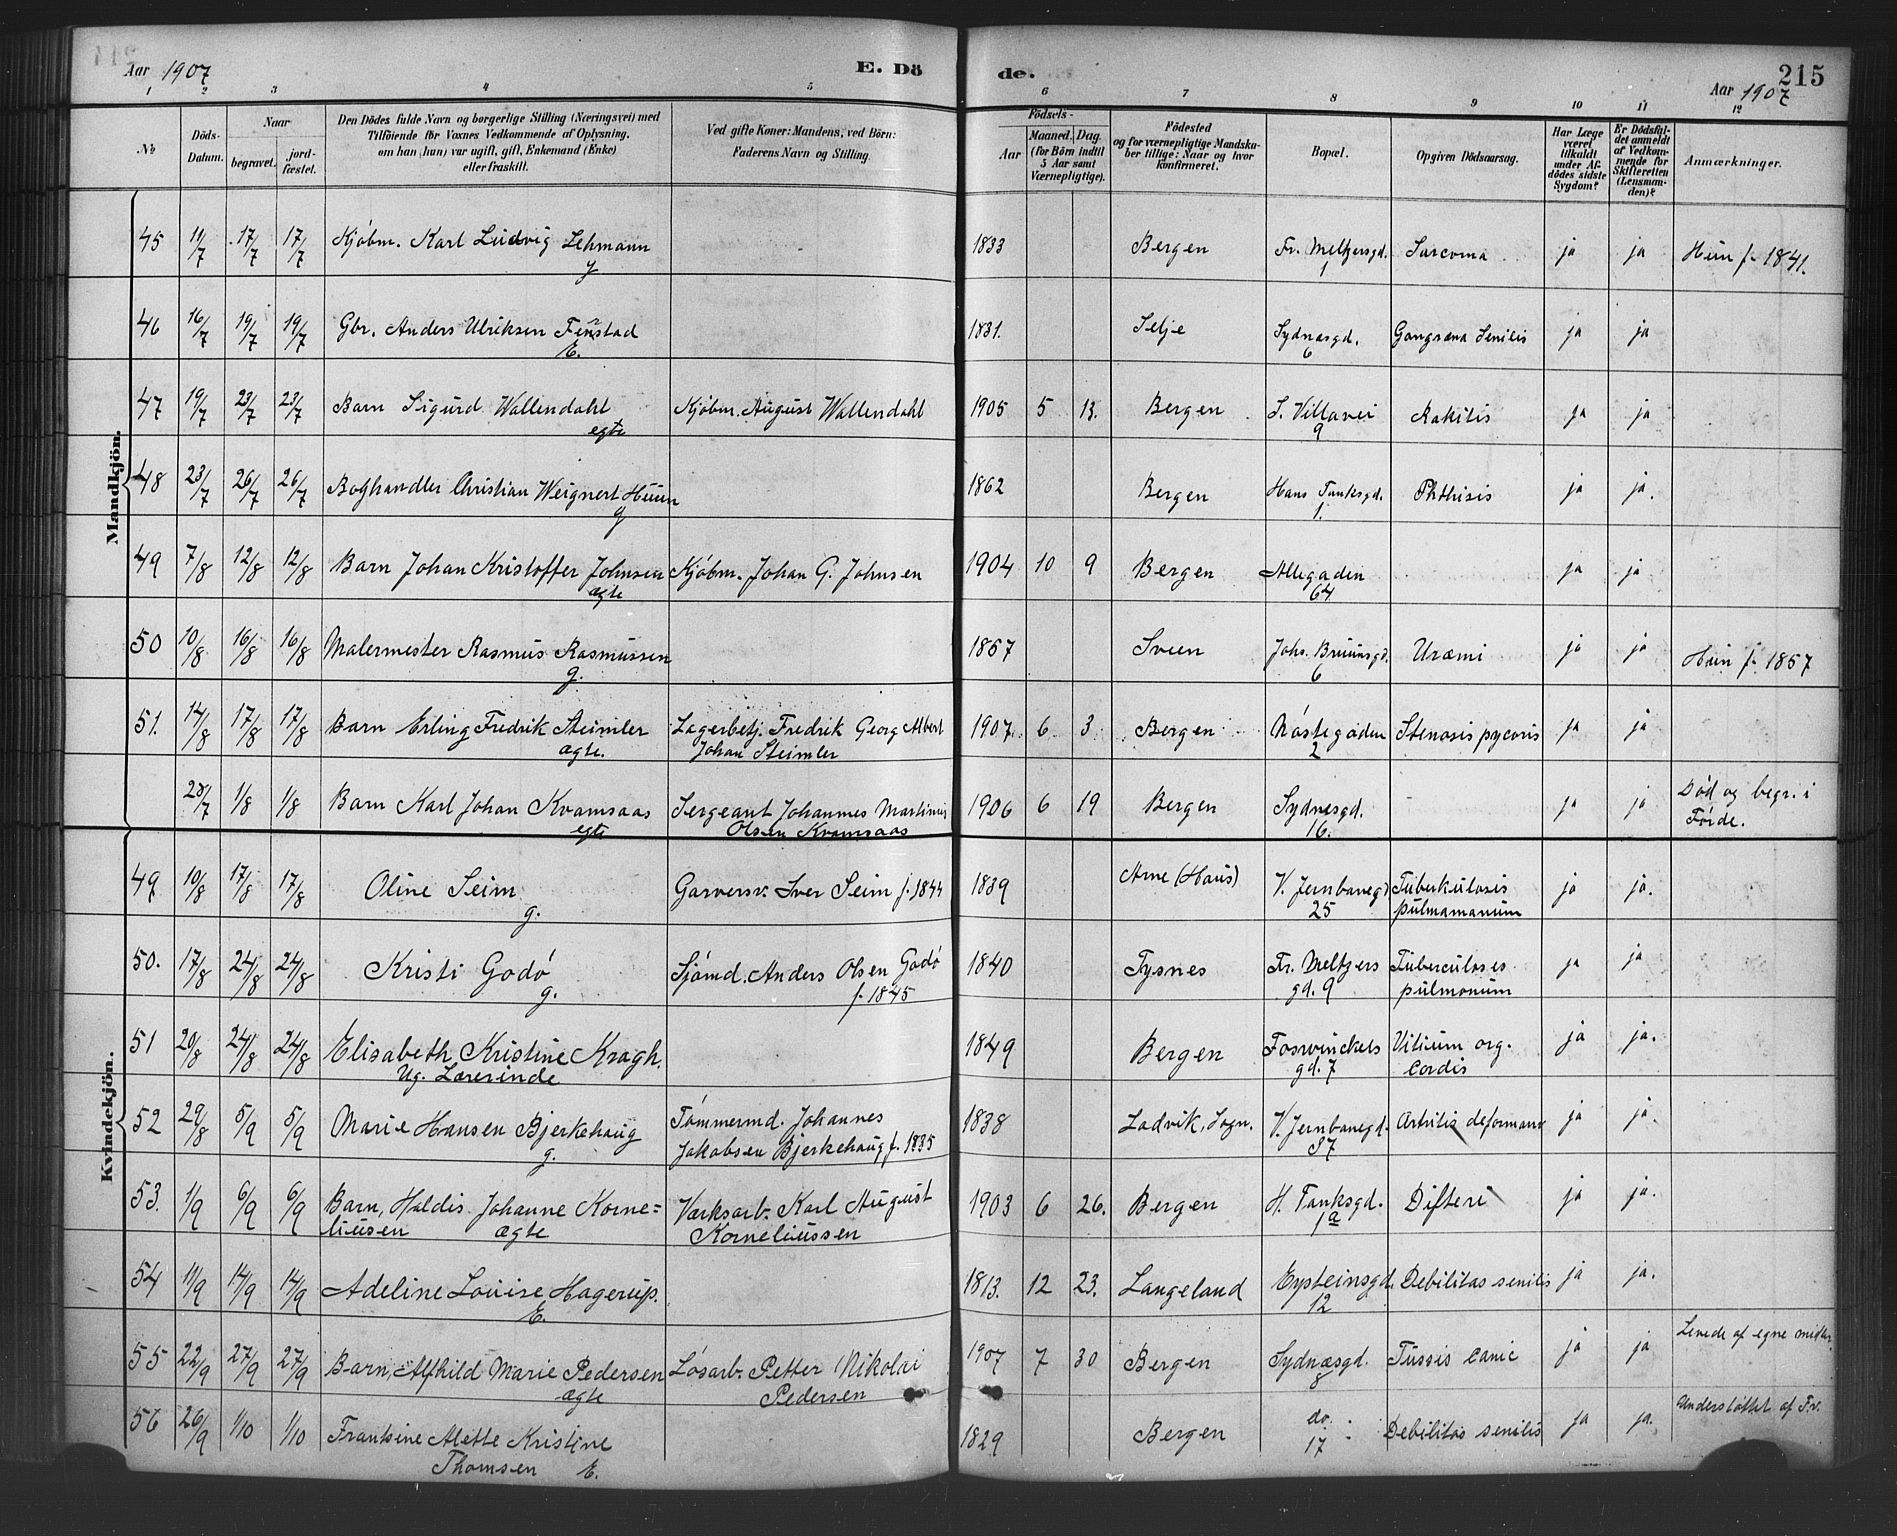 Aar 1907
E. Dö
de.
215
Aar 1907
1 2 3 4 5 6 7 8 9 10 11 12
No
Döds-Datum.
Naar
begravet.
jordfæstet.
Den Dödes fulde Navn og borgerlige Stilling (Næringsvei) med
Tilföiende for Voxnes Vedkommende af Oplysning,
om han (hun) var ugift, gift, Enkemand (Enke)
eller fraskilt.
Ved gifte Koner: Mandens, ved Börn:
Faderens Navn og Stilling.
Födsels-
Aar
Maaned. Dag.
(for Börn indtil
5 Aar samt
Værnepligtige).
Födested
og for værnepligtige Mandskaber tillige: Naar og hvor
konfirmeret.
Bopæl.
Opgiven Dödsaarsag.
Har Læge
været
tilkaldt
under Afdödes sidste
Sygdom?
Er Dödsfaldet anmeldt
af Vedkommende for
Skifteretten
(Lensmanden)?
Anmærkninger.
Mandkjön.
45 11/7 17/7 17/7 Kjøbm. Karl Ludvig Lehmann g 1833 Bergen Fr. Meltzersgd. 1 Sarcoma ja ja Hun f. 1841.
46 16/7 19/7 19/7 Gbr. Anders Ulriksen Finstad E. 1831. Selje Sydnæsgd. 6 Gangræna Senilis ja ja
47 19/7 23/7 23/7 Barn Sigurd Wallendahl egte Kjøbm. August Wallendahl 1905 5 13. Bergen S. Villavei 9 Rakitis ja ja
48 23/7 26/7 26/7 Boghandler Christian Weignert Huun g 1862 Bergen Hans Tanksgd. 1. Phthisis ja ja.
49 7/8 12/8 12/8 Barn Johan Kristoffer Johnsen ægte Kjøbm. Johan G. Johnsen 1904 10 9 Bergen Allegaden 64 ja ja
50 10/8 16/8 16/8 Malermester Rasmus Rasmussen g. 1857 Sveen Johs. Bruunsgd. 6 Uræmi ja ja Hun f. 1857
51. 14/8 17/8 17/8 Barn Erling Fredrik Steimler ægte. Lagerbetj. Fredrik Georg Albert
Johan Steimler 1907. 6 3 Bergen Nøstegaden 2 Stenosis pycoris ja ja
28/7 1/8 1/8 Barn Karl Johan Kvamsaas egte Sergeant Johannes Martinius
Olsen Kvamsaas 1906 6 19 Bergen Sydnesgd. 16. ja ja Død og begr. i
Førde.
Kvindekjön.
49 10/8 17/8 17/8 Oline Seim g. Garversv. Iver Seim f. 1844 1839 Arne (Haus) V. Jernbanegd 25 Tuberkulosis
pulmamanum ja ja.
50. 17/8 24/8 24/8 Kristi Godø g. Sjømd. Anders Olsen Godø
f. 1845 1840 Tysnes Fr. Meltzers
gd. 9 Tuberculoses
pulmonum ja ja
51 20/8 24/8 24/8 Elisabeth Kristine Kragh.
Ug. Lærerinde 1849 Bergen Foswinckels
gd. 7 Vitium org.
Cordis ja ja.
52 29/8 5/9 5/9 Marie Hansen Bjerkehaug g. Tømmermd. Johannes
Jakobsen Bjerkehaug f. 1835 1838 Ladvik, Sogn. V. Jernbanegd. 37 Artritis deformans ja ja.
53. 1/9 6/9 6/9 Barn, Haldis Johanne Korne=
liussen ægte Værksarb. Karl August
Korneliussen 1903 6 26. Bergen H. Tanksgd. 1a Difteri ja ja.
54 11/9 14/9 14/9 Adeline Louise Hagerup. E. 1813. 12 23. Langeland Eysteinsgd. 12 Debilitas senilis ja ja.
55 22/9 27/9 27/9 Barn, Alfhild Marie Pedersen ægte Løsarb. Petter Nikolai
Pedersen 1907 7 30 Bergen Sydnæsgd. 8 Tussis Canic ja ja Levede af egne midler.
56 26/9 1/10 1/10 Frantsine Alette Kristine
Thomsen E. 1829 Bergen do. 17 Debilitas senilis ja ja. Understøttet af Fv.